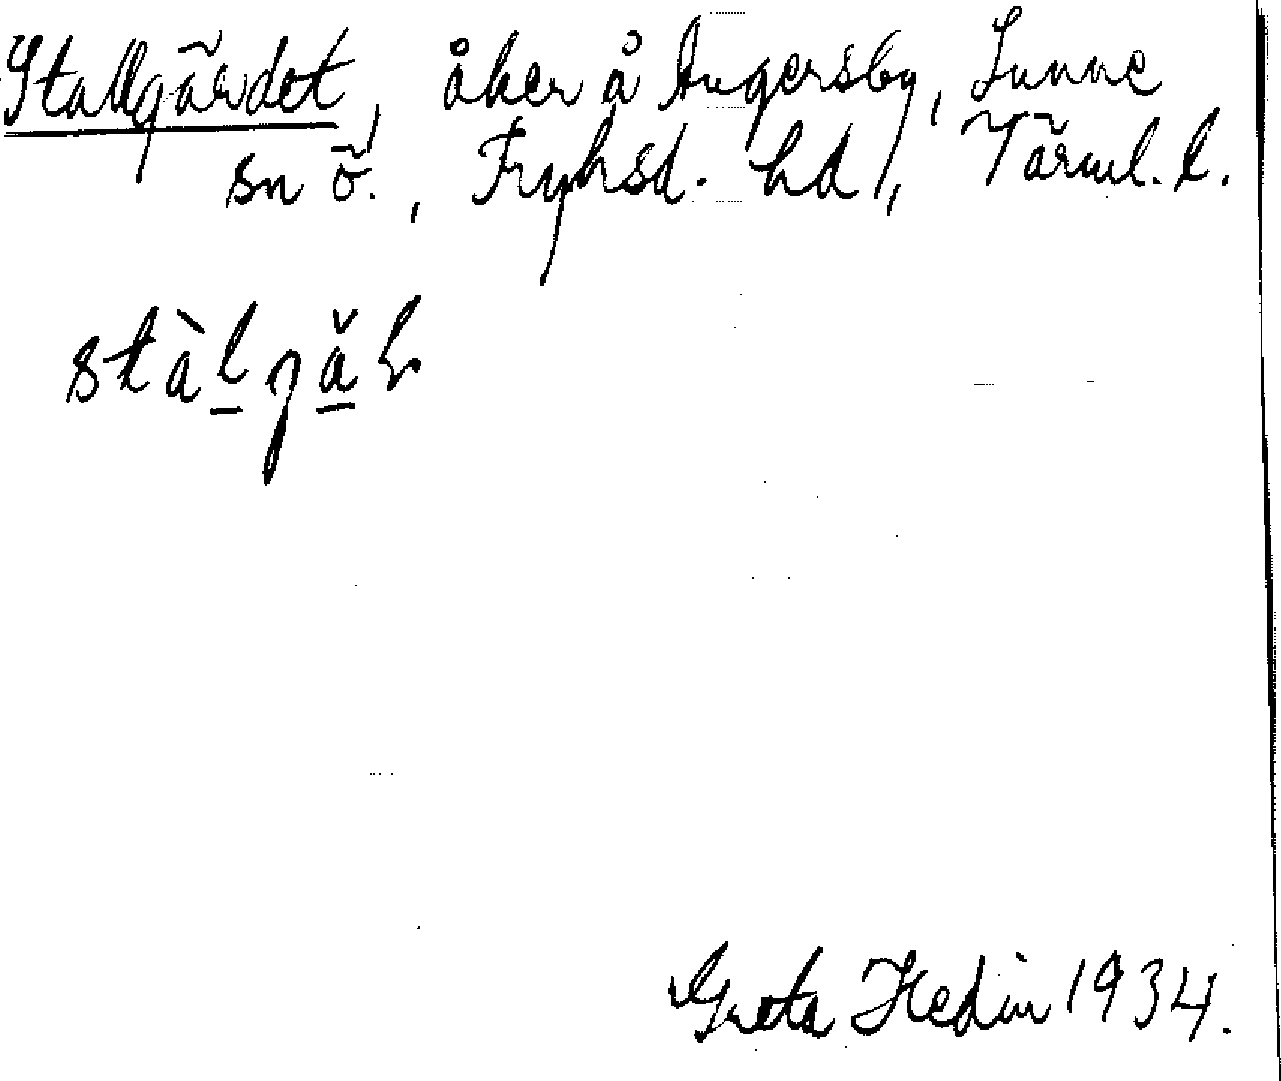 Stallgärdet, åker å Ångersby, Sunne
sn ö., Fryksd. hd, Värml. l.
stàlgăḷ
Greta Hedin 1934.